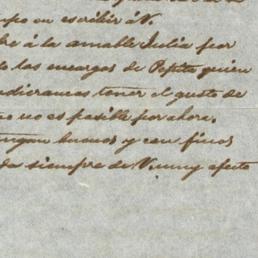 po en escribir á V.
á la amable Julia por
los encargos de Pepita quien
tener el gusto de
no es posible por ahora.
buenos y con finos
siempre de V. muy afecto